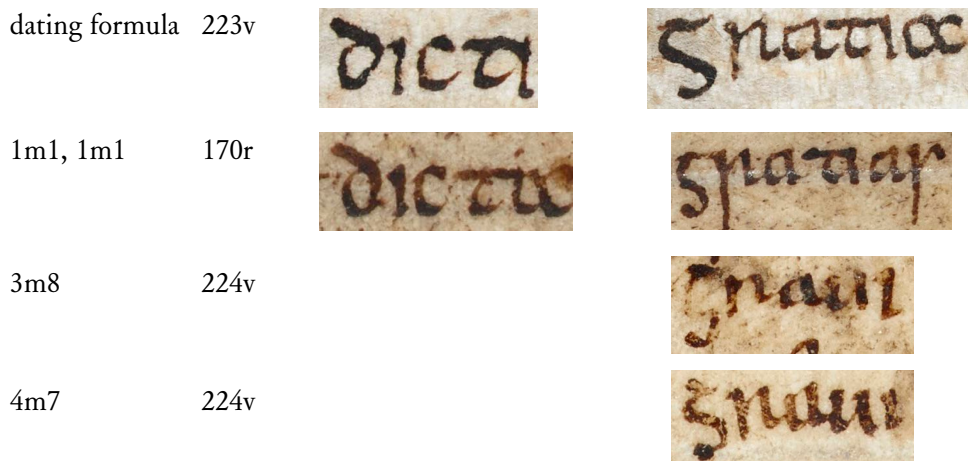 dating formula 223v dicti gratia
1m1, 1m1 170r gratias
3m8 224v graui
4m7 224v graui